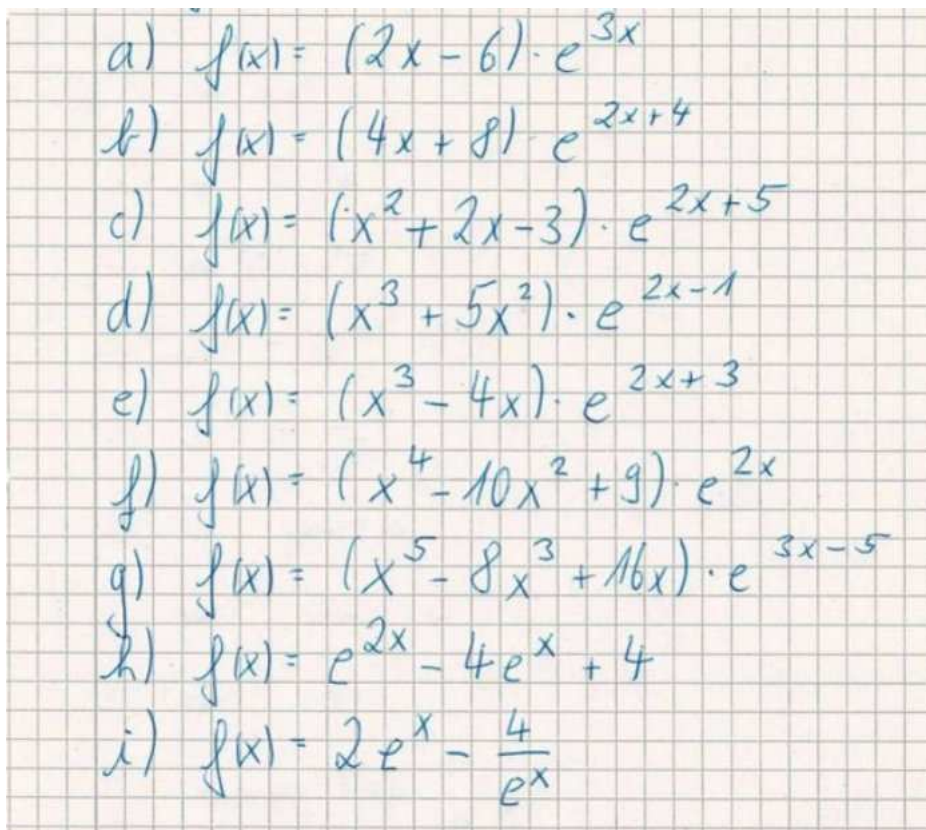 a) f(x) = (2x - 6) · e^{3x}
b) f(x) = (4x + 8) · e^{2x+4}
c) f(x) = (x² + 2x - 3) · e^{2x+5}
d) f(x) = (x³ + 5x²) · e^{2x-1}
e) f(x) = (x³ - 4x) · e^{2x+3}
f) f(x) = (x⁴ - 10x² + 9) · e^{2x}
g) f(x) = (x⁵ - 8x³ + 16x) · e^{3x-5}
h) f(x) = e^{2x} - 4e^x + 4
i) f(x) = 2e^x - \frac{4}{e^x}